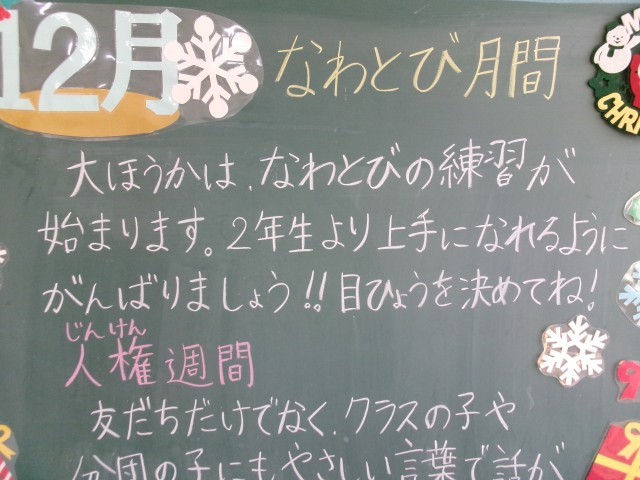 12月
なわとび月間
大ほうかは、なわとびの練習が
始まります。2年生より上手になれるように
がんばりましょう!!目ひょうを決めてね!
じんけん
人権週間
友だちだけでなく、クラスの子や
分団の子にもやさしい言葉で話が